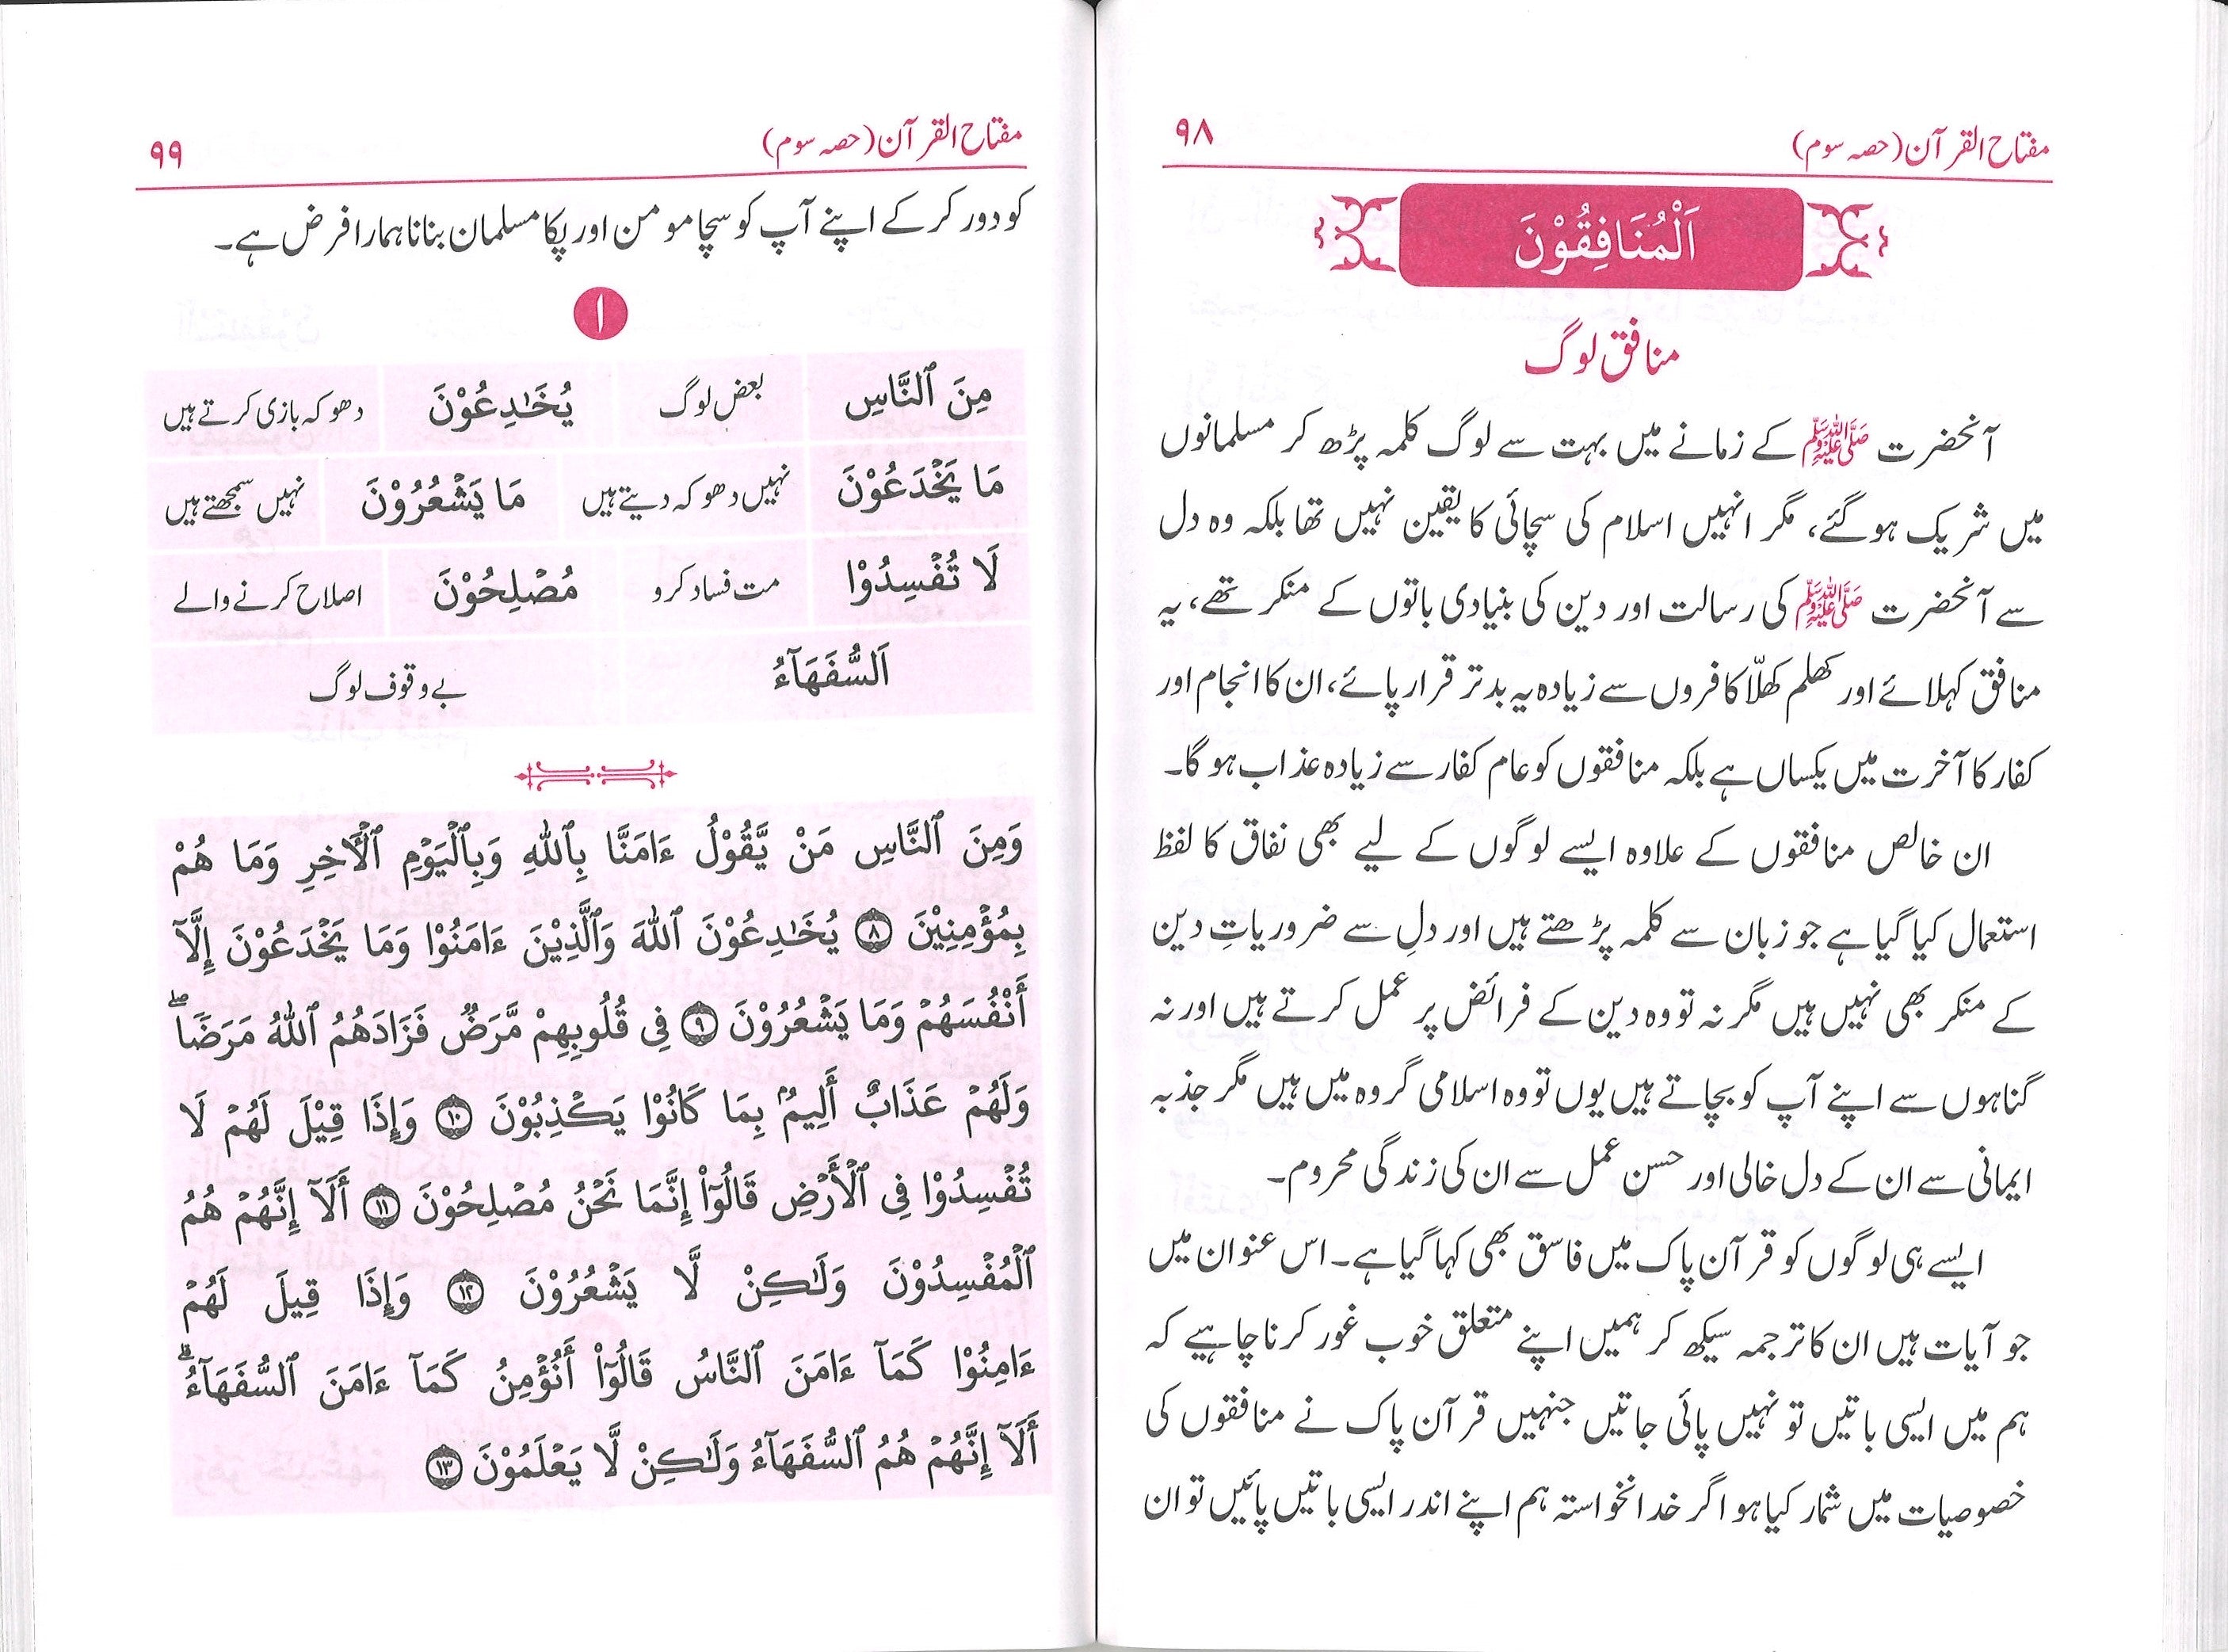 مفتاح القرآن (حصہ سوم) ۹۸
اَلْمُنَافِقُوْنَ
منافق لوگ
آنحضرت ﷺ کے زمانے میں بہت سے لوگ کلمہ پڑھ کر مسلمانوں
میں شریک ہوگئے، مگر انہیں اسلام کی سچائی کا یقین نہیں تھا بلکہ وہ دل
سے آنحضرت ﷺ کی رسالت اور دین کی بنیادی باتوں کے منکر تھے، یہ
منافق کہلائے اور کھلم کھلّا کافروں سے زیادہ یہ بدتر قرار پائے، ان کا انجام اور
کفار کا آخرت میں یکساں ہے بلکہ منافقوں کو عام کفار سے زیادہ عذاب ہوگا۔
ان خالص منافقوں کے علاوہ ایسے لوگوں کے لیے بھی نفاق کا لفظ
استعمال کیا گیا ہے جو زبان سے کلمہ پڑھتے ہیں اور دل سے ضروریاتِ دین
کے منکر بھی نہیں ہیں مگر نہ تو وہ دین کے فرائض پر عمل کرتے ہیں اور نہ
گناہوں سے اپنے آپ کو بچاتے ہیں یوں تو وہ اسلامی گروہ میں ہیں مگر جذبہ
ایمانی سے ان کے دل خالی اور حسن عمل سے ان کی زندگی محروم۔
ایسے ہی لوگوں کو قرآن پاک میں فاسق بھی کہا گیا ہے۔ اس عنوان میں
جو آیات ہیں ان کا ترجمہ سیکھ کر ہمیں اپنے متعلق خوب غور کرنا چاہیے کہ
ہم میں ایسی باتیں تو نہیں پائی جاتیں جنہیں قرآن پاک نے منافقوں کی
خصوصیات میں شمار کیا ہو اگر خدانخواستہ ہم اپنے اندر ایسی باتیں پائیں تو ان
مفتاح القرآن (حصہ سوم) ۹۹
کو دور کرکے اپنے آپ کو سچا مومن اور پکا مسلمان بنانا ہمارا فرض ہے۔
۱
مِنَ ٱلنَّاسِ بعض لوگ يُخَـٰدِعُوْنَ دھوکہ بازی کرتے ہیں
مَا يَخْدَعُوْنَ نہیں دھوکہ دیتے ہیں مَا يَشْعُرُوْنَ نہیں سمجھتے ہیں
لَا تُفْسِدُوْا مت فساد کرو مُصْلِحُوْنَ اصلاح کرنے والے
اَلسُّفَهَآءُ بے وقوف لوگ
وَمِنَ ٱلنَّاسِ مَنْ يَّقُوْلُ ءَامَنَّا بِٱللّٰهِ وَبِٱلْيَوْمِ ٱلْأٓخِرِ وَمَا هُمْ
بِمُؤْمِنِيْنَ ۝٨ يُخَـٰدِعُوْنَ ٱللّٰهَ وَٱلَّذِيْنَ ءَامَنُوْا وَمَا يَخْدَعُوْنَ إِلَّآ
أَنْفُسَهُمْ وَمَا يَشْعُرُوْنَ ۝٩ فِي قُلُوبِهِمْ مَّرَضٌ فَزَادَهُمُ ٱللّٰهُ مَرَضًا ۖ
وَلَهُمْ عَذَابٌ أَلِيمٌۢ بِمَا كَانُوْا يَكْذِبُوْنَ ۝١٠ وَإِذَا قِيْلَ لَهُمْ لَا
تُفْسِدُوْا فِي ٱلْأَرْضِ قَالُوْٓا إِنَّمَا نَحْنُ مُصْلِحُوْنَ ۝١١ أَلَآ إِنَّهُمْ هُمُ
ٱلْمُفْسِدُوْنَ وَلَـٰكِنْ لَّا يَشْعُرُوْنَ ۝١٢ وَإِذَا قِيلَ لَهُمْ
ءَامِنُوْا كَمَآ ءَامَنَ ٱلنَّاسُ قَالُوْٓا أَنُؤْمِنُ كَمَآ ءَامَنَ ٱلسُّفَهَآءُ ۗ
أَلَآ إِنَّهُمْ هُمُ ٱلسُّفَهَآءُ وَلَـٰكِنْ لَّا يَعْلَمُوْنَ ۝١٣